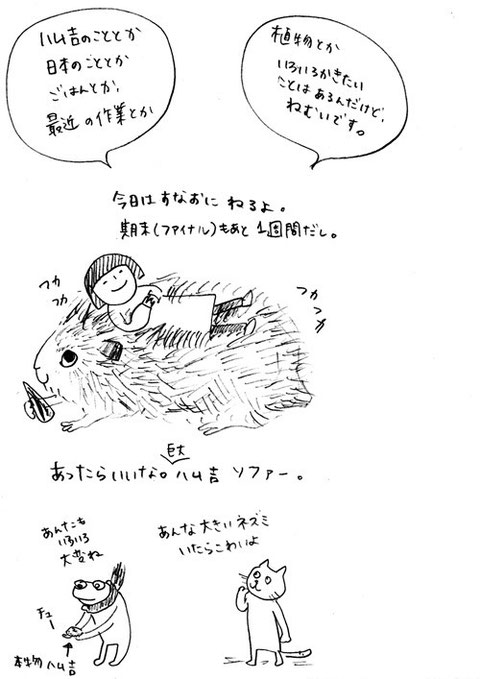 ハム吉のこととか
日本のこととか
ごはんとか、
最近の作業とか
植物とか
いろいろかきたい
ことはあるんだけど、
ねむいです。
今日はすなおに ねるよ。
期末(ファイナル)もあと1週間だし。
フカ
フカ
フカ
フカ
巨大
あったらいいな。ハム吉 ソファー。
あんたも
いろいろ
大変ね
チュー
本物ハム吉
あんな大きいネズミ
いたらこわいよ